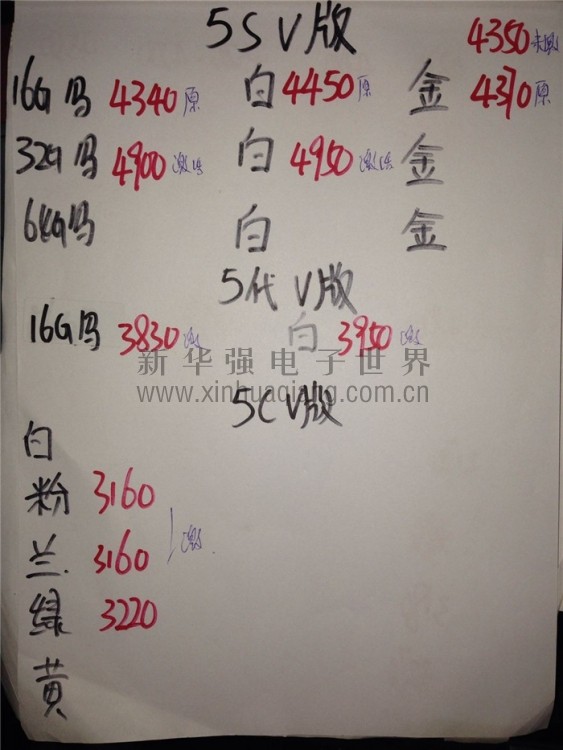 5S V版
4350
16G 马 4340原 白 4450原 金 4370原
32G 马 4900 白 4950 金
64G 马 白 金
5代 V版
16G 马 3830 白 3950
新华强电子世界
www.xinhuaqiang.com.cn
5C V版
白
粉 3160
兰 3160
绿 3220
黄